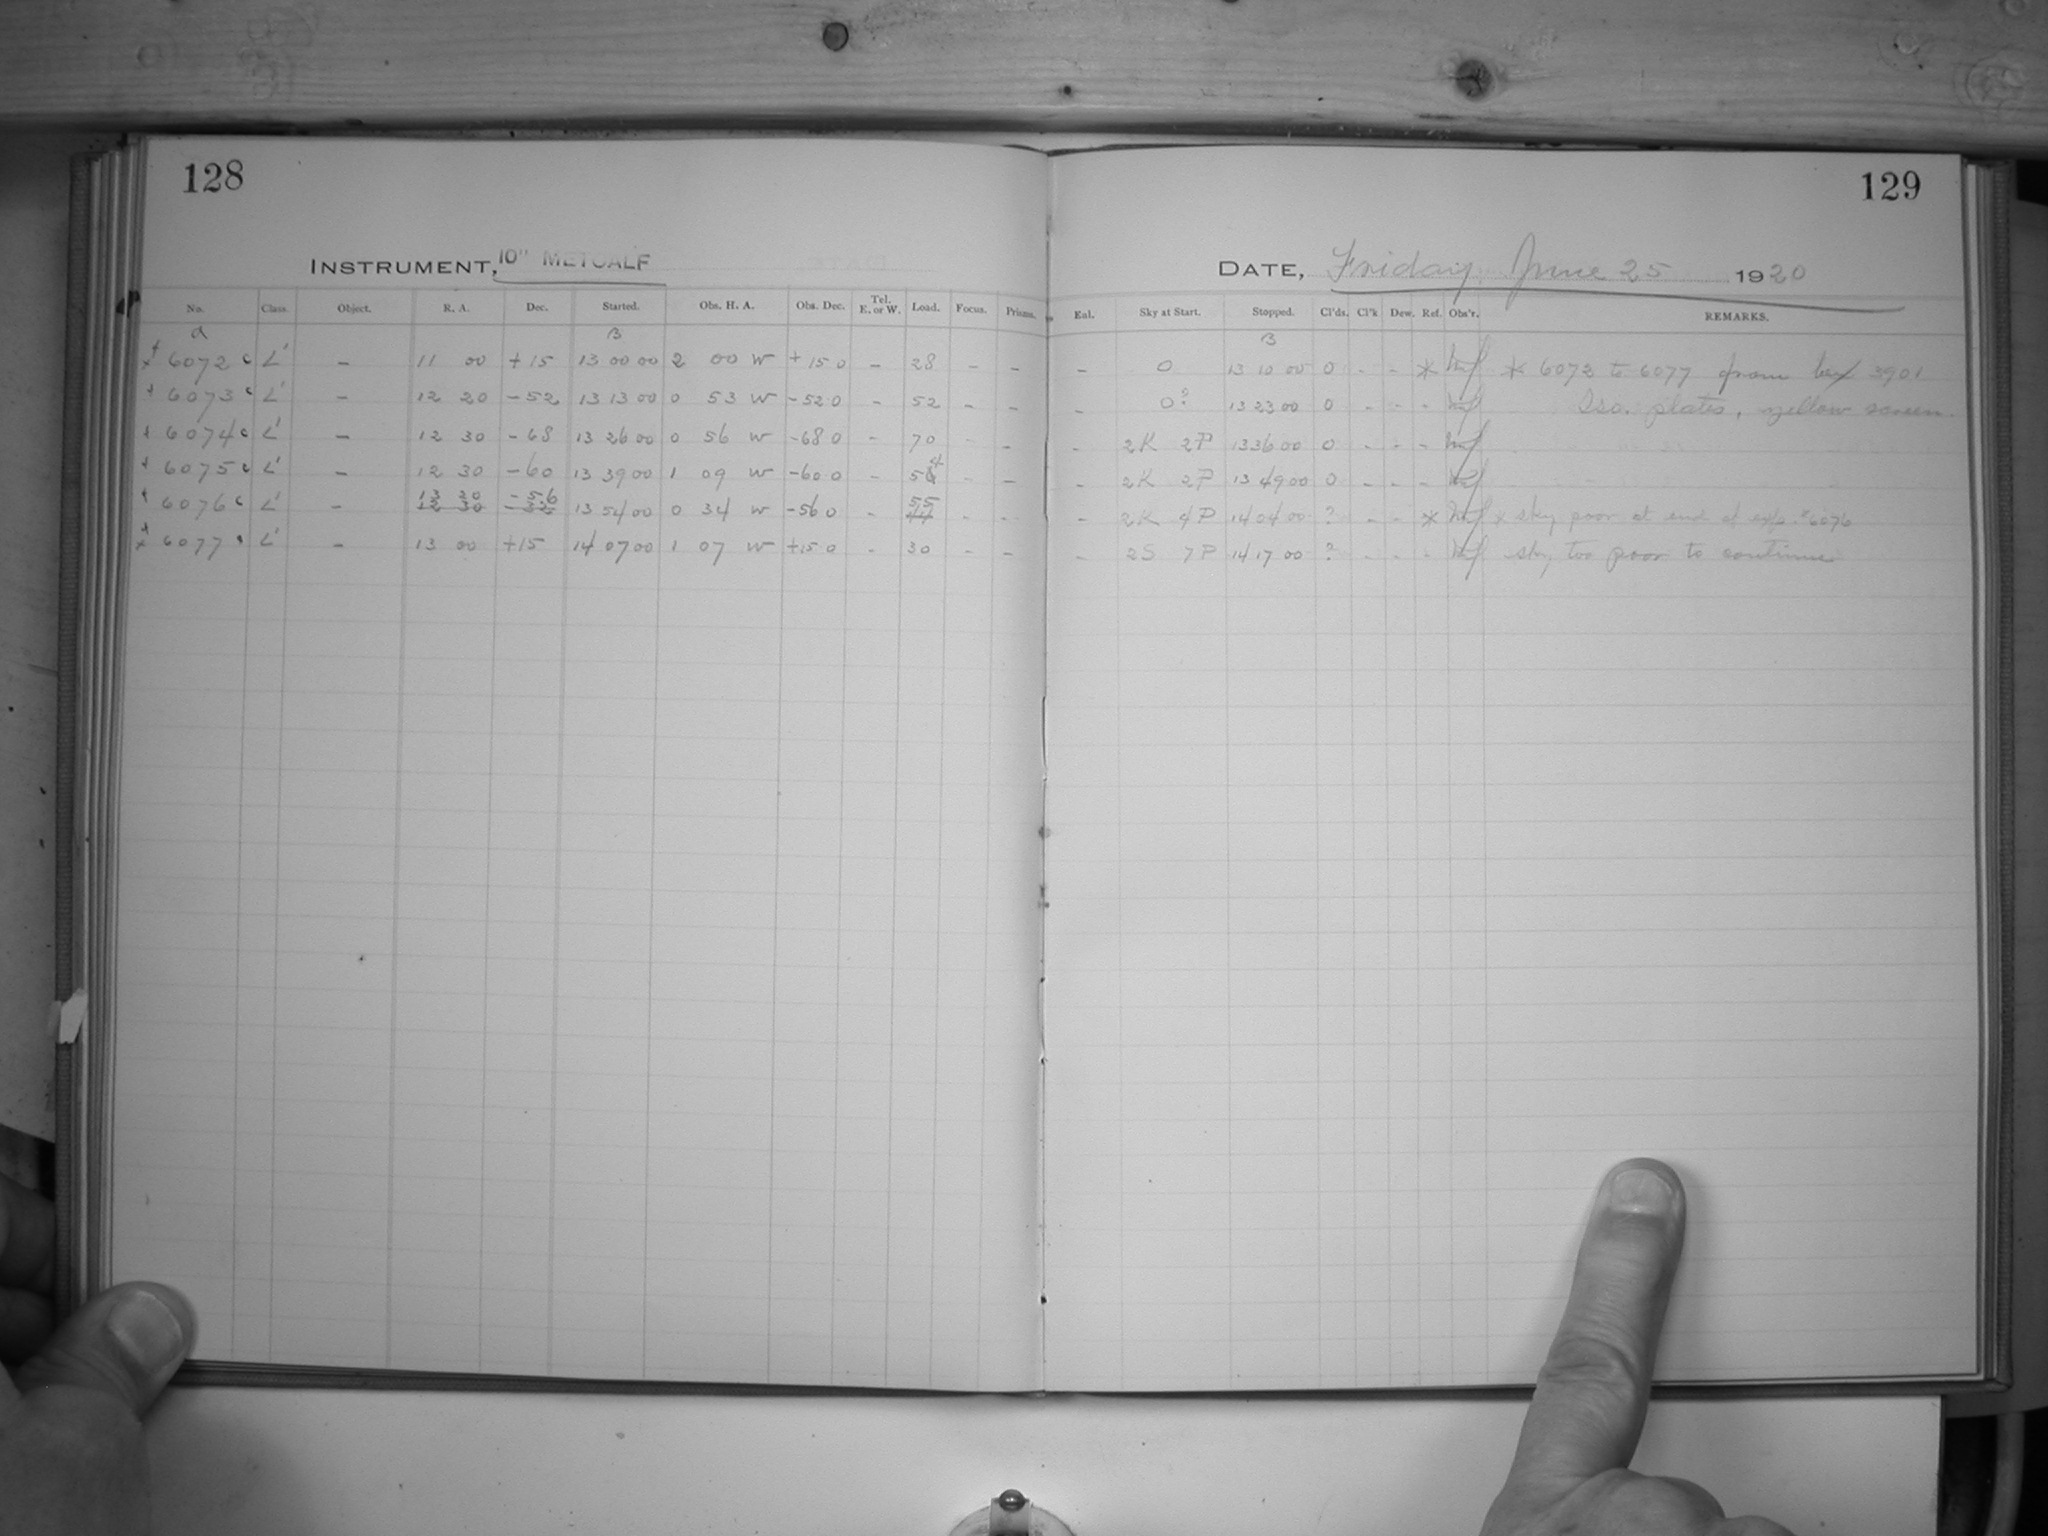 128
129
INSTRUMENT, 10" METCALF
DATE, Friday June 25 1920
No. Class. Object. R. A. Dec. Started. Obs. H. A. Obs. Dec. Tel. E. or W. Load. Focus. Prisms. Eul. Sky at Start. Stopped. Cl'ds. Cl'k Dew. Ref. Obs'r. REMARKS.
a B B
6072 c L' – 11 00 +15 13 00 00 2 00 W +15 0 – 28 – – – 0 13 10 00 0 - - * * 6072 to 6077 from box 3901
6073 c L' – 12 20 –52 13 13 00 0 53 W –52 0 – 52 – – – 0? 13 23 00 0 - - - Iso. plates, yellow screen
6074 c L' – 12 30 –68 13 26 00 0 56 W –68 0 – 70 – – – 2K 2P 13 36 00 0 - - -
6075 c L' – 12 30 –60 13 39 00 1 09 W –60 0 – – – – 2K 2P 13 49 00 0 - - -
13 20 –56 55
6076 c L' – 12 30 13 54 00 0 34 W –56 0 – 44 – – – 2K 4P 14 04 00 ? - - * * sky poor at end of exp. #6076
6077 L' – 13 00 +15 14 07 00 1 07 W +15 0 – 30 – – – 2S 7P 14 17 00 ? - - - sky too poor to continue